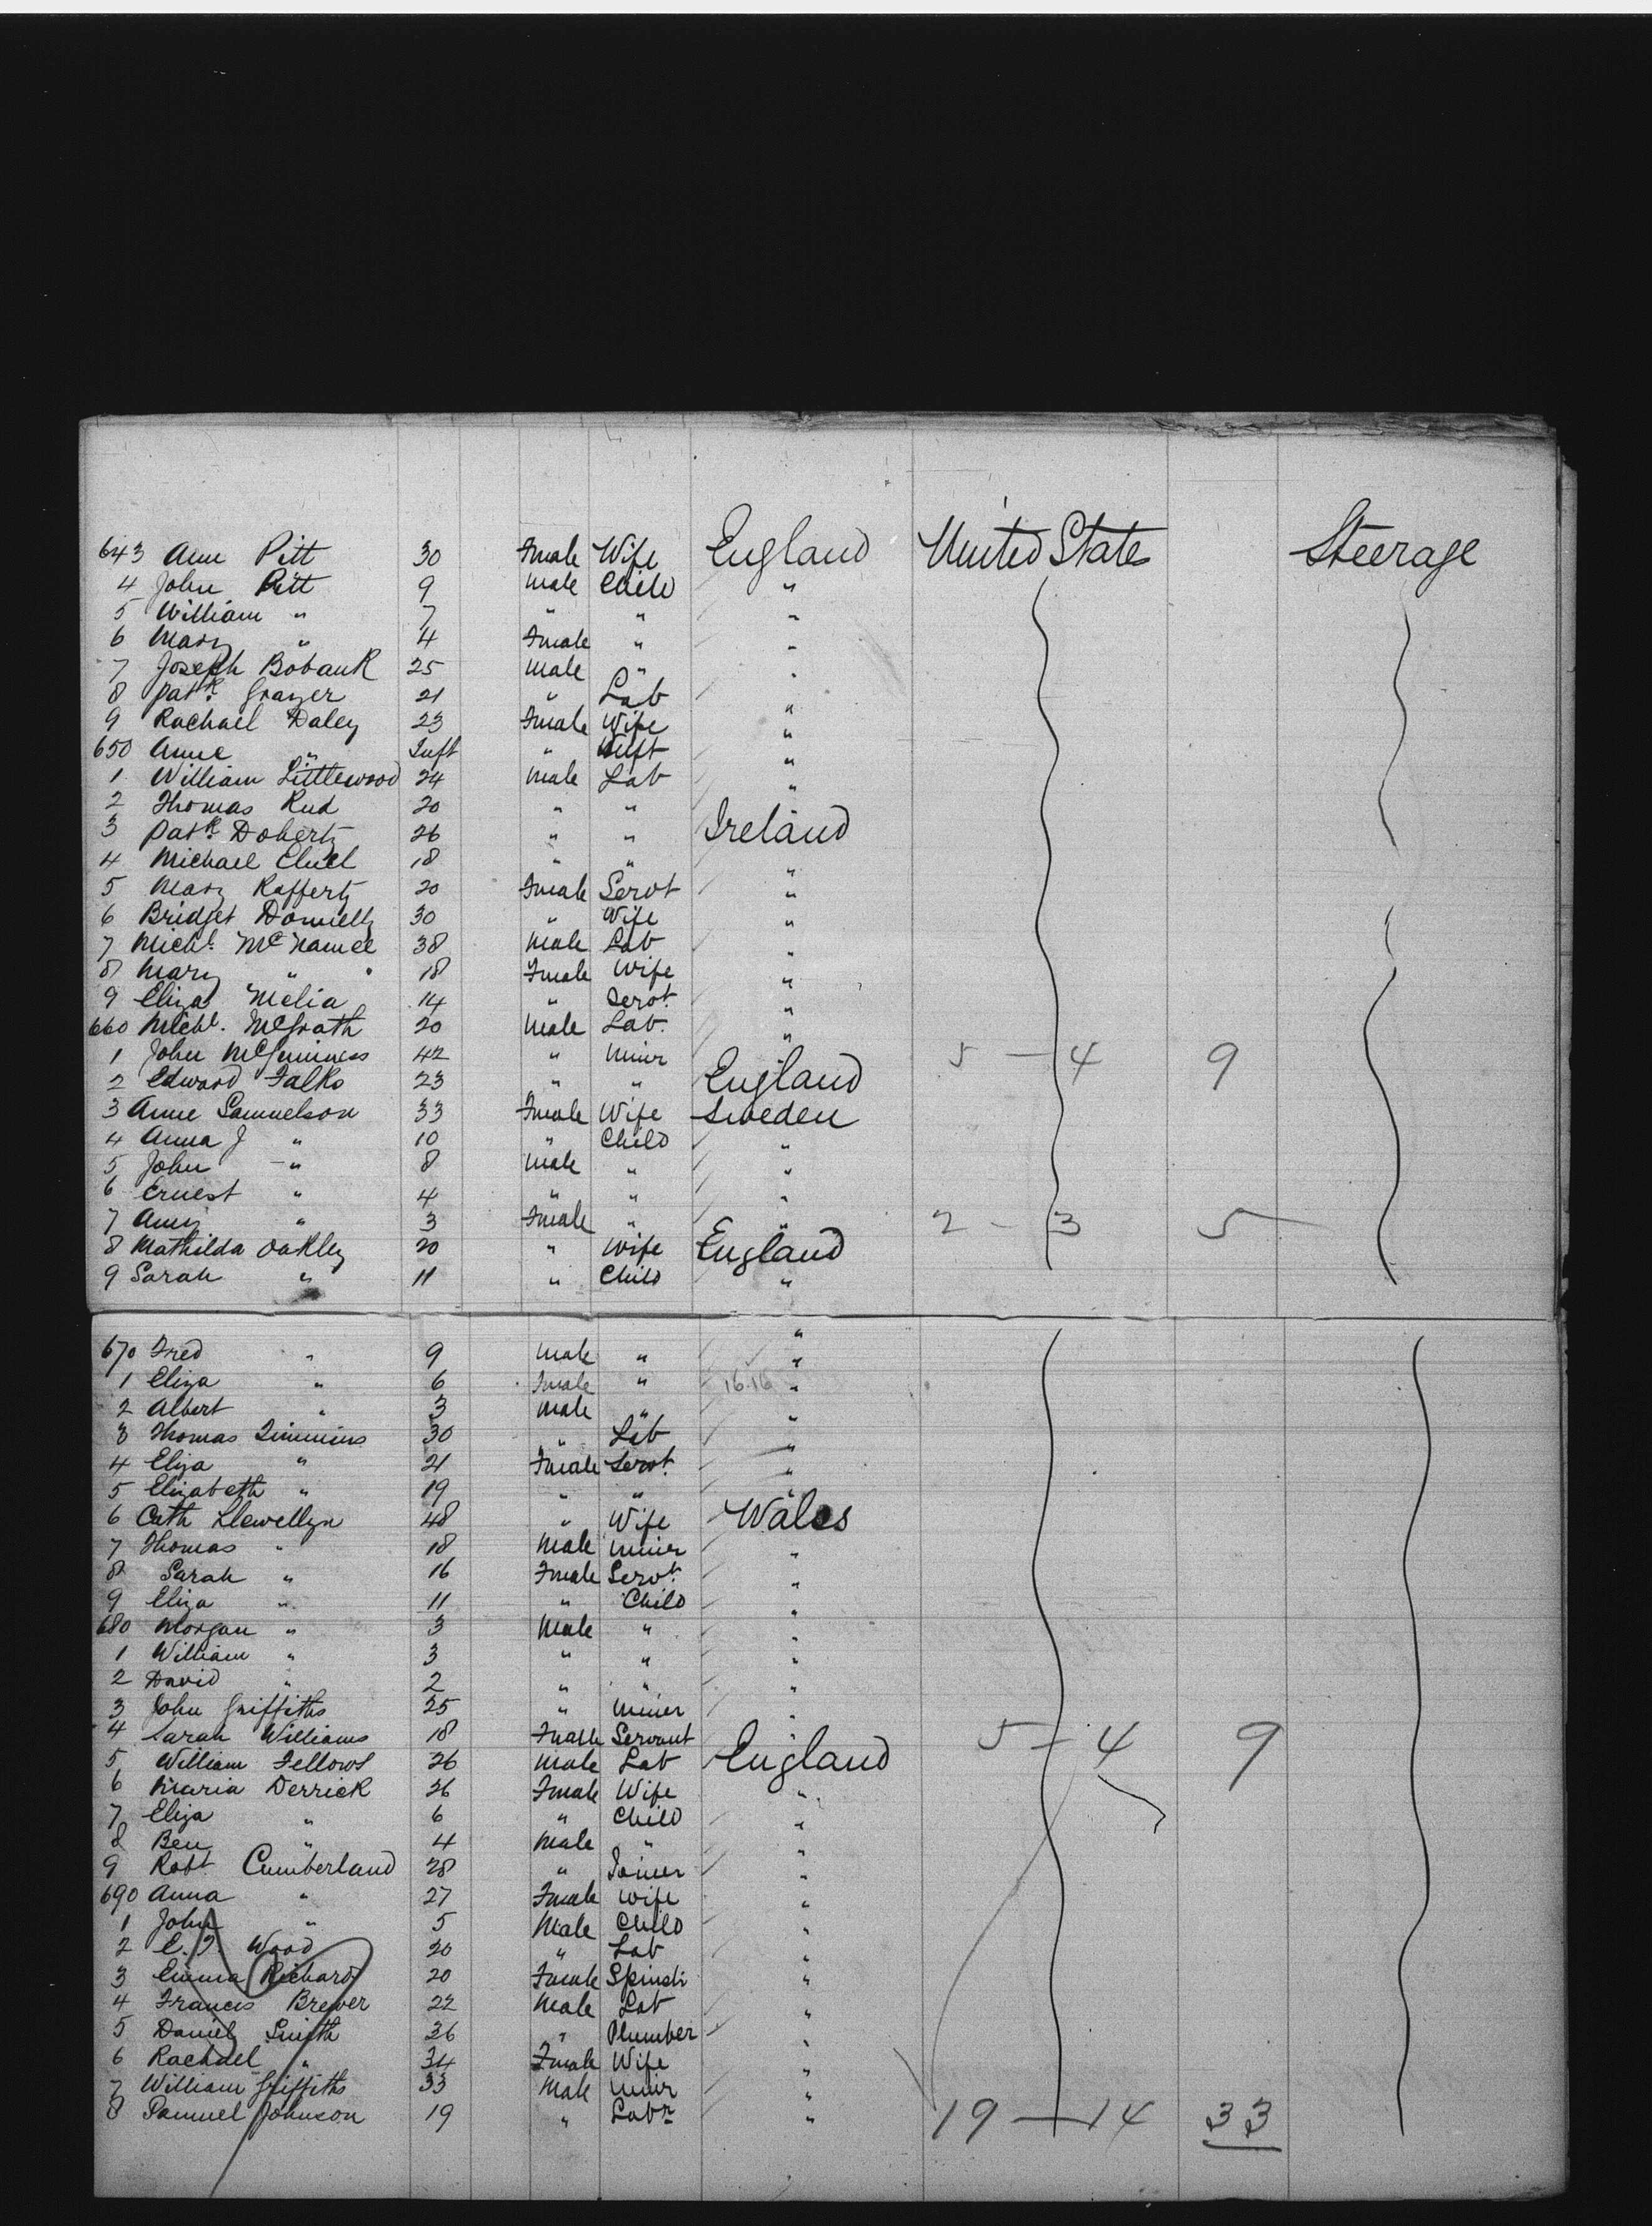 643 Ann Pitt 30 Female Wife England United States Steerage
4 John Pitt 9 Male Child "
5 William " 7 " " "
6 Mary " 4 Female " "
7 Joseph Bobank 25 Male " "
8 Patk. Grazer 21 " Lab "
9 Rachael Daley 23 Female Wife "
650 Anne " Inft " Inft "
1 William Littlewood 24 Male Lab "
2 Thomas Rud 20 " "
3 Patk. Doherty 26 " " Ireland
4 Michael 18 " " "
5 Mary Rafferty 20 Female Servt "
6 Bridget 30 " Wife "
7 Michl. McNamee 38 Male Lab "
8 Mary " 18 Female Wife "
9 Eliza Melia 14 " Servt. "
660 Michl. McGrath 20 Male Lab. "
1 John McGuiness 42 " Miner " 5 – 4 9
2 Edward Falks 23 " " England
3 Anne Samuelson 33 Female Wife Sweden
4 Anna J " 10 " Child "
5 John " 8 Male " "
6 Ernest " 4 " " "
7 Amy " 3 Female " " 2 – 3 5
8 Mathilda Oakley 20 " Wife England
9 Sarah " 11 " Child "
670 Fred " 9 Male " "
1 Eliza " 6 Female " 16.16 "
2 Albert " 3 Male " "
3 Thomas Timmins 30 " Lab "
4 Eliza " 21 Female Servt. "
5 Elizabeth " 19 " " "
6 Cath Llewellyn 48 " Wife Wales
7 Thomas " 18 Male Miner "
8 Sarah " 16 Female Servt. "
9 Eliza " 11 " Child "
680 Morgan " 3 Male " "
1 William " 3 " " "
2 David " 2 " " "
3 John Griffiths 25 " Miner "
4 Sarah Williams 18 Female Servant " 5 – 4 9
5 William Fellows 26 Male Lab England
6 Maria Derrick 26 Female Wife "
7 Eliza " 6 " Child "
8 Ben " 4 Male " "
9 Robt Cumberland 28 " Joiner "
690 Anna " 27 Female Wife "
1 John " 5 Male Child "
2 E. J. Wood 20 " Lab "
3 Emma Richard 20 Female Spinstr "
4 Francis Brewer 22 Male Lab "
5 Daniel Smith 36 " Plumber "
6 Rachael " 34 Female Wife "
7 William Griffiths 33 Male Miner "
8 Samuel Johnson 19 " Labr " 19 – 14 33